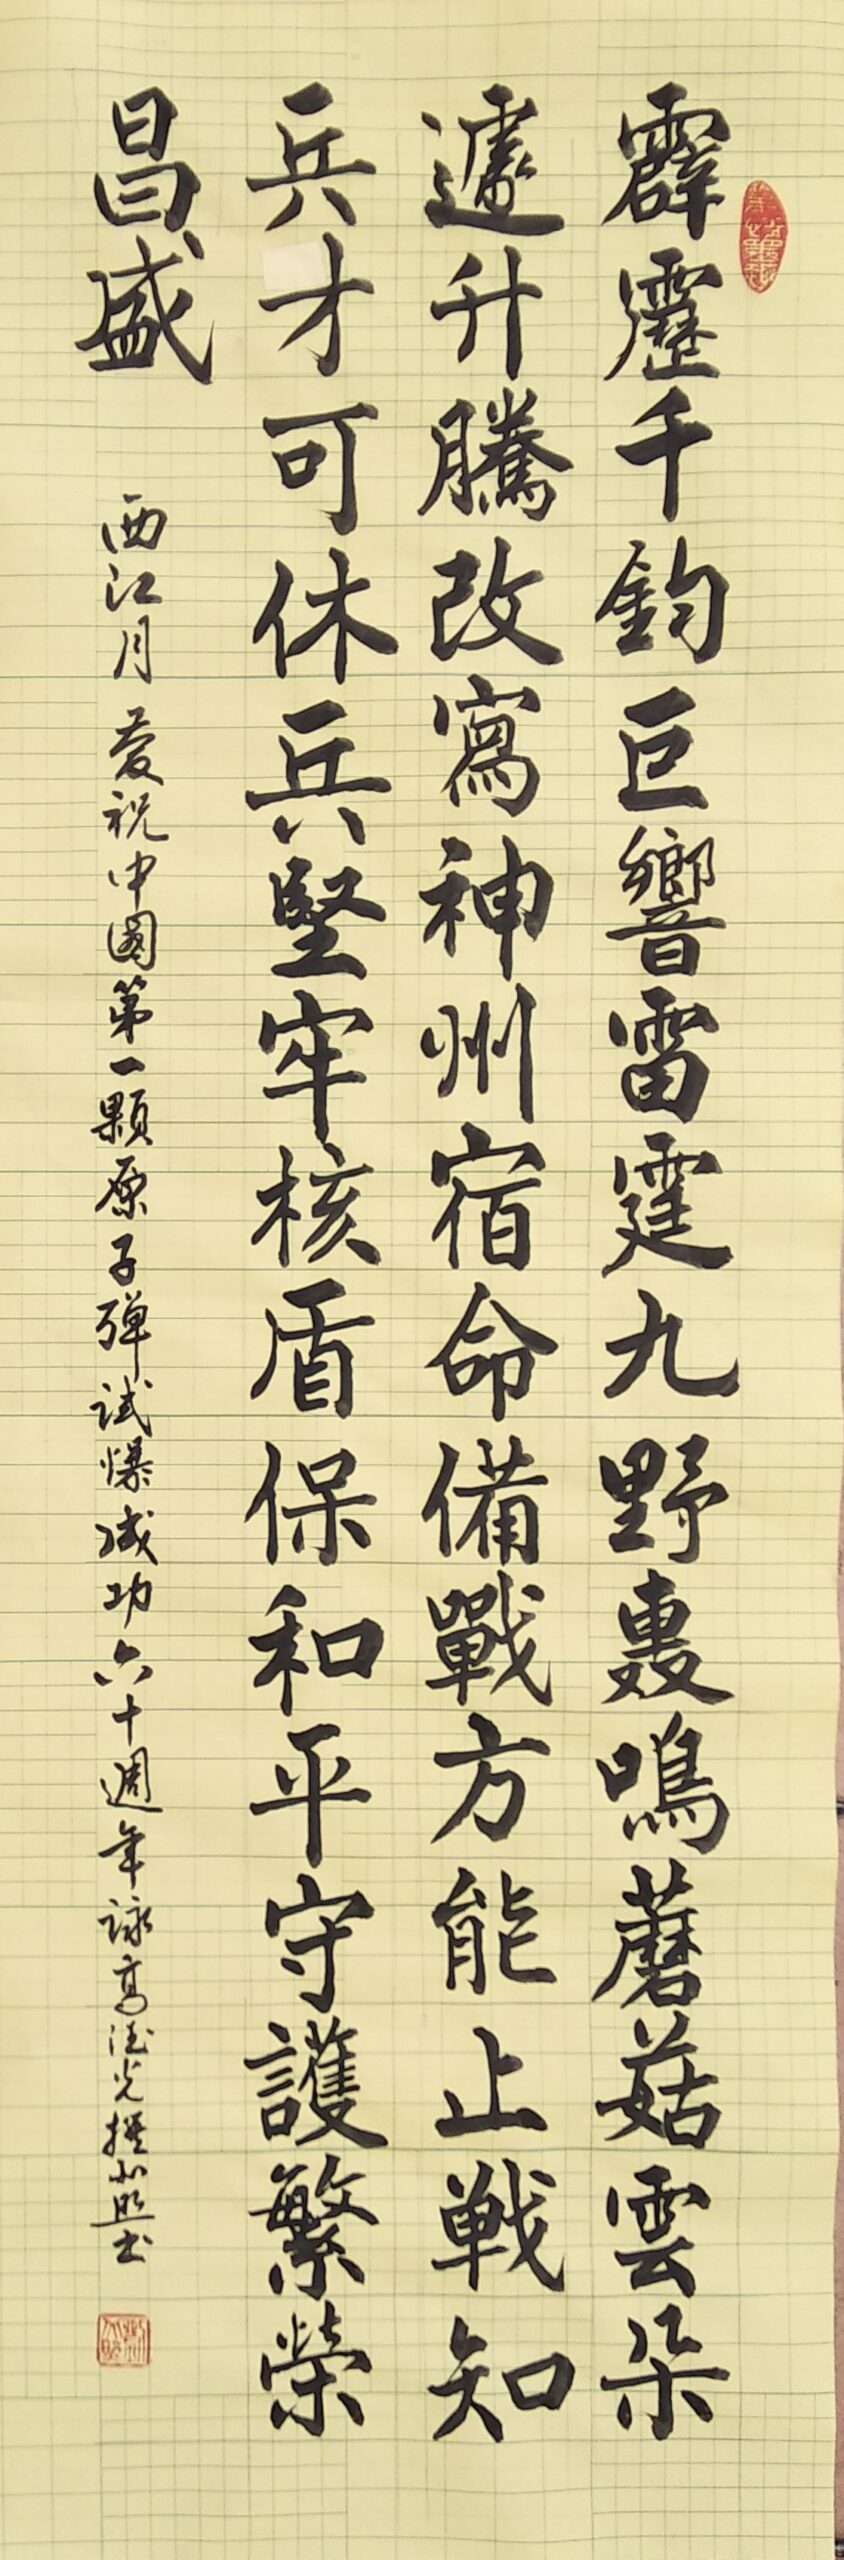 霹靂千鈞巨響雷霆九野轰鳴蘑菇雲朵
遽升騰改寫神州宿命備戰方能止戦知
兵才可休兵堅牢核盾保和平守護繁榮
昌盛
西江月 慶祝中國第一顆原子弹試爆成功六十週年詠高德光撰